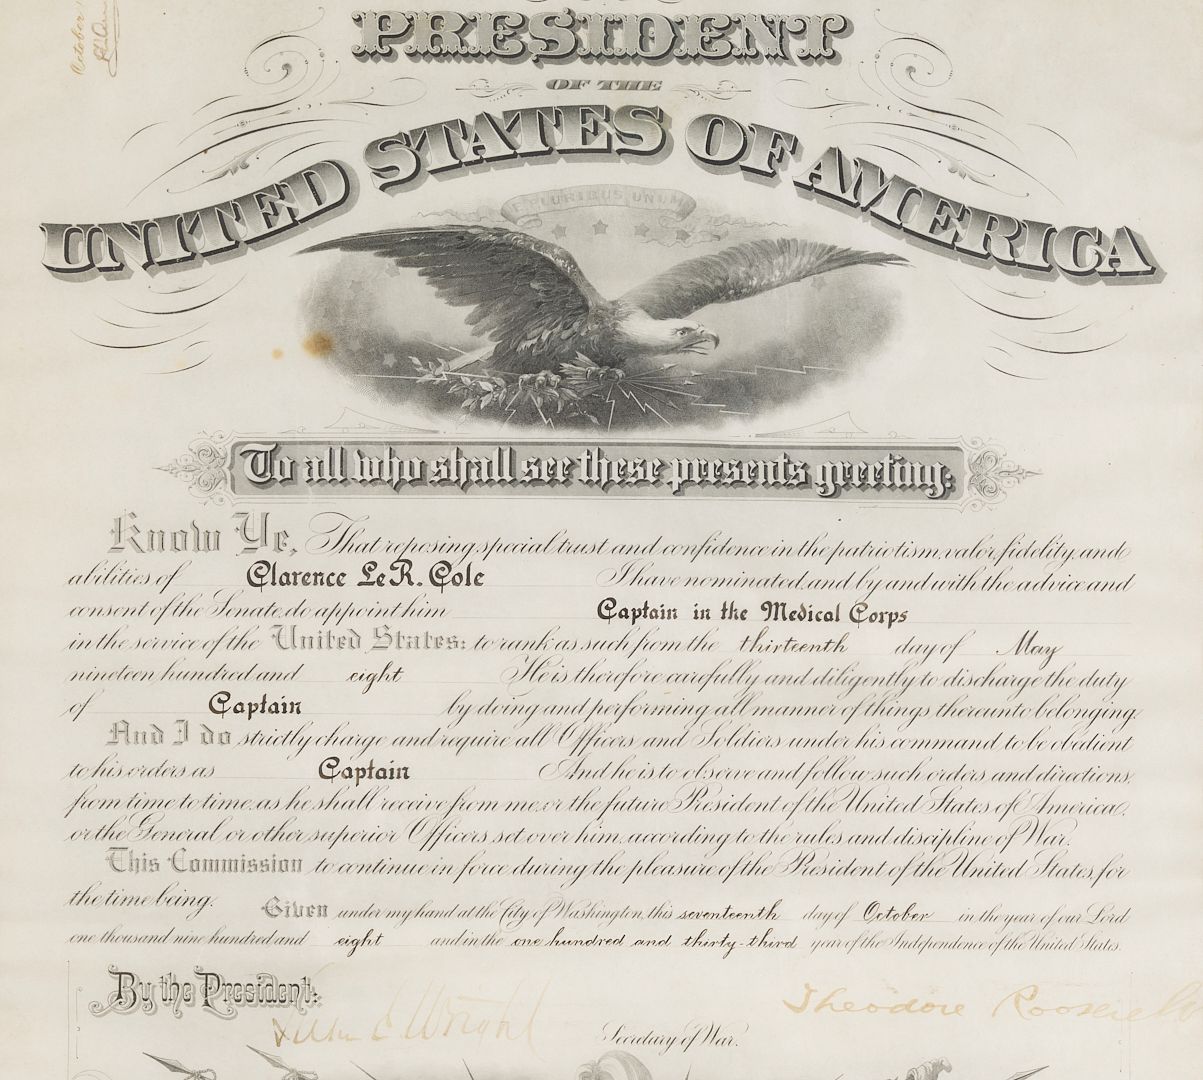 October
PRESIDENT
OF THE
UNITED STATES OF AMERICA
E PLURIBUS UNUM
To all who shall see these presents greeting:
Know Ye, That reposing special trust and confidence in the patriotism, valor, fidelity, and
abilities of Clarence LeR. Cole I have nominated, and by and with the advice and
consent of the Senate, do appoint him Captain in the Medical Corps
in the service of the United States: to rank as such from the thirteenth day of May
nineteen hundred and eight He is therefore carefully and diligently to discharge the duty
of Captain by doing and performing all manner of things thereunto belonging.
And I do strictly charge and require all Officers and Soldiers under his command to be obedient
to his orders as Captain And he is to observe and follow such orders and directions,
from time to time, as he shall receive from me, or the future President of the United States of America,
or the General or other superior Officers set over him, according to the rules and discipline of War.
This Commission to continue in force during the pleasure of the President of the United States, for
the time being.
Given under my hand at the City of Washington, this seventeenth day of October in the year of our Lord
one thousand nine hundred and eight and in the one hundred and thirty-third year of the Independence of the United States.
By the President:
Theodore Roosevelt
Luke E Wright
Secretary of War.